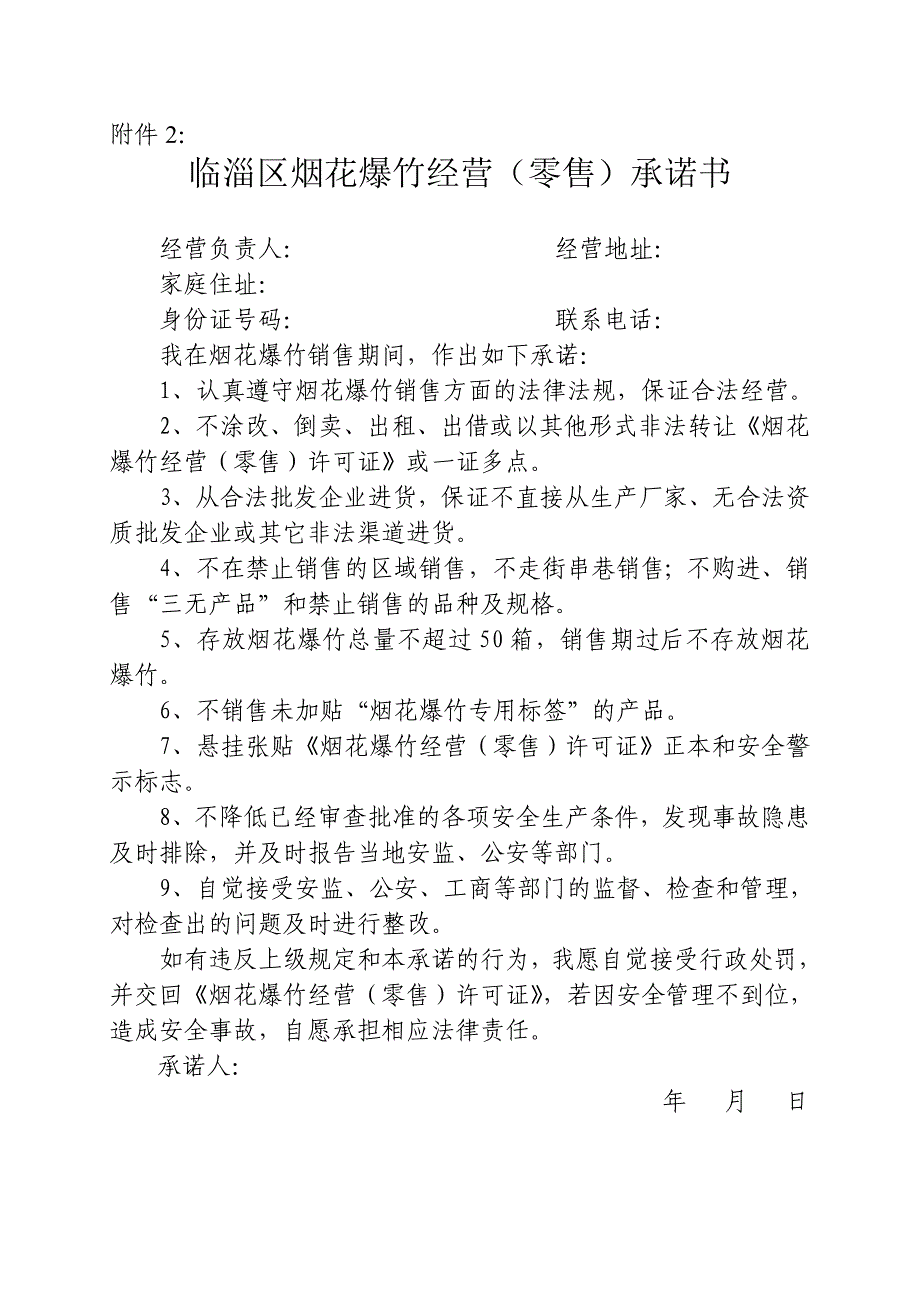 附件2：
临淄区烟花爆竹经营（零售）承诺书
经营负责人： 经营地址：
家庭住址：
身份证号码： 联系电话：
我在烟花爆竹销售期间，作出如下承诺：
1、认真遵守烟花爆竹销售方面的法律法规，保证合法经营。
2、不涂改、倒卖、出租、出借或以其他形式非法转让《烟花
爆竹经营（零售）许可证》或一证多点。
3、从合法批发企业进货，保证不直接从生产厂家、无合法资
质批发企业或其它非法渠道进货。
4、不在禁止销售的区域销售，不走街串巷销售；不购进、销
售“三无产品”和禁止销售的品种及规格。
5、存放烟花爆竹总量不超过50箱，销售期过后不存放烟花
爆竹。
6、不销售未加贴“烟花爆竹专用标签”的产品。
7、悬挂张贴《烟花爆竹经营（零售）许可证》正本和安全警
示标志。
8、不降低已经审查批准的各项安全生产条件，发现事故隐患
及时排除，并及时报告当地安监、公安等部门。
9、自觉接受安监、公安、工商等部门的监督、检查和管理，
对检查出的问题及时进行整改。
如有违反上级规定和本承诺的行为，我愿自觉接受行政处罚，
并交回《烟花爆竹经营（零售）许可证》，若因安全管理不到位，
造成安全事故，自愿承担相应法律责任。
承诺人：
年 月 日